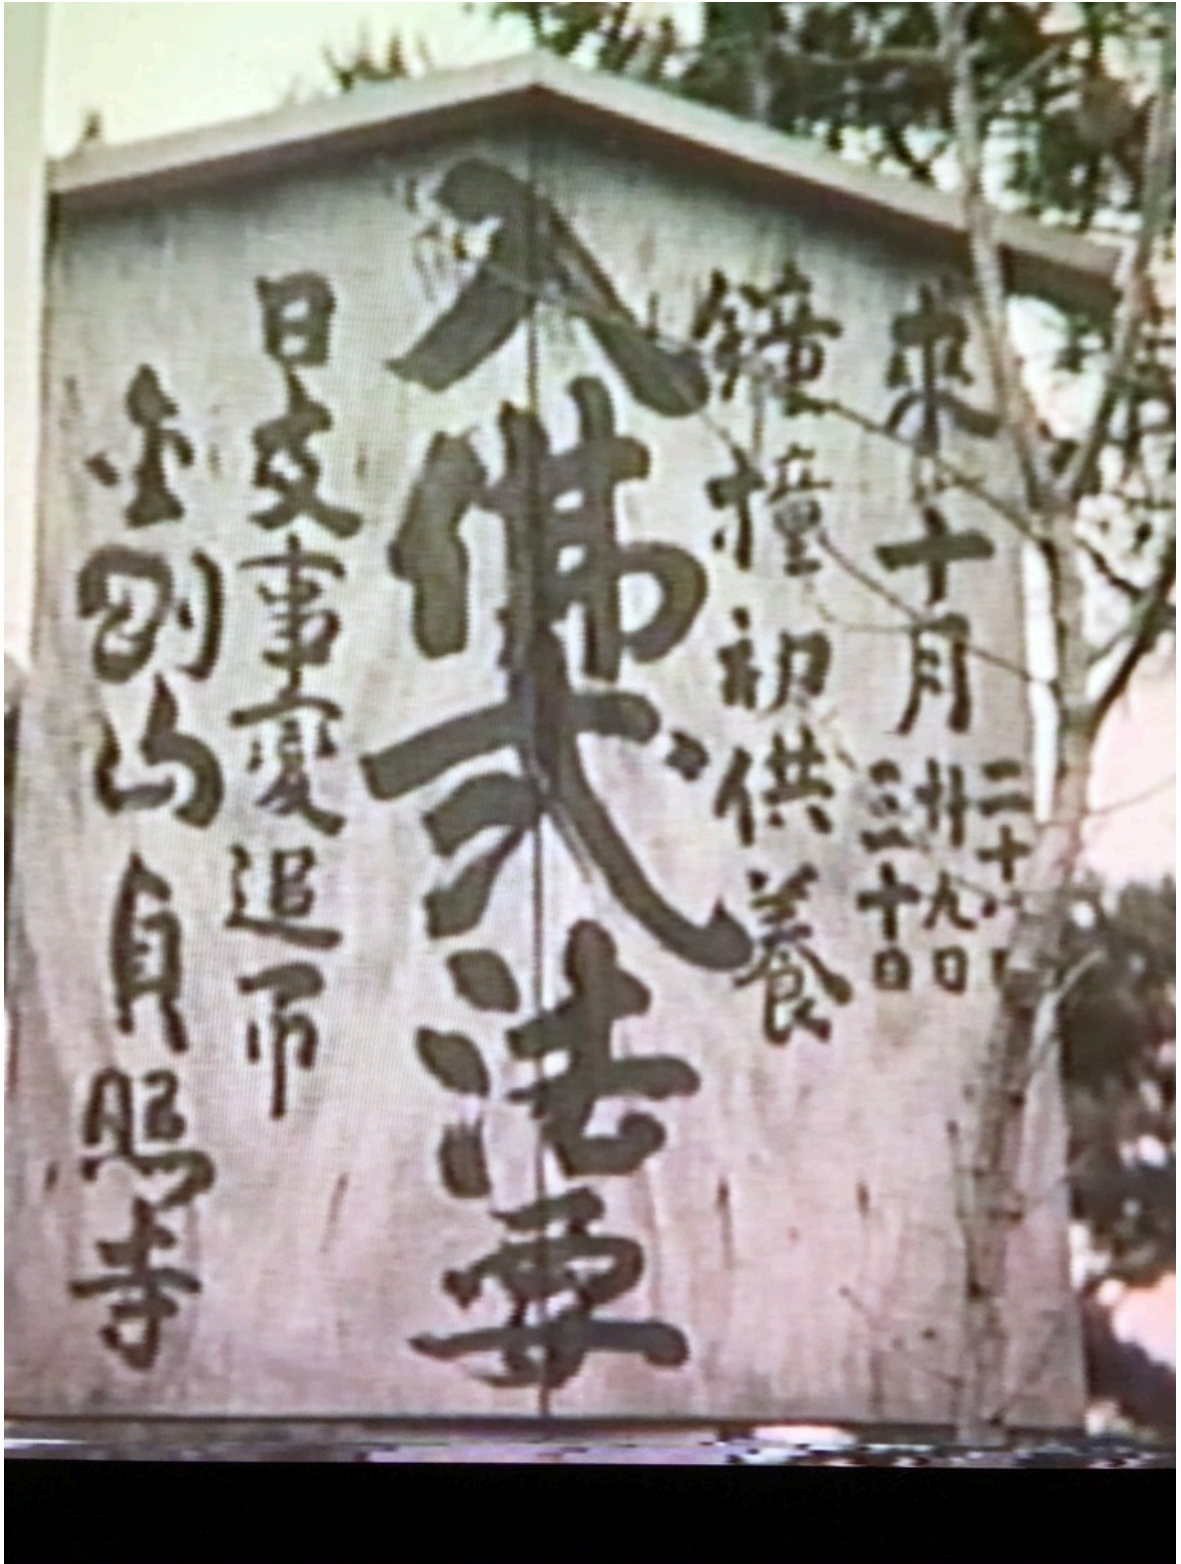 来十月
二十
卅九日
三十日
鐘撞初供養
入佛式法要
日支事変追弔
金剛山貞照寺